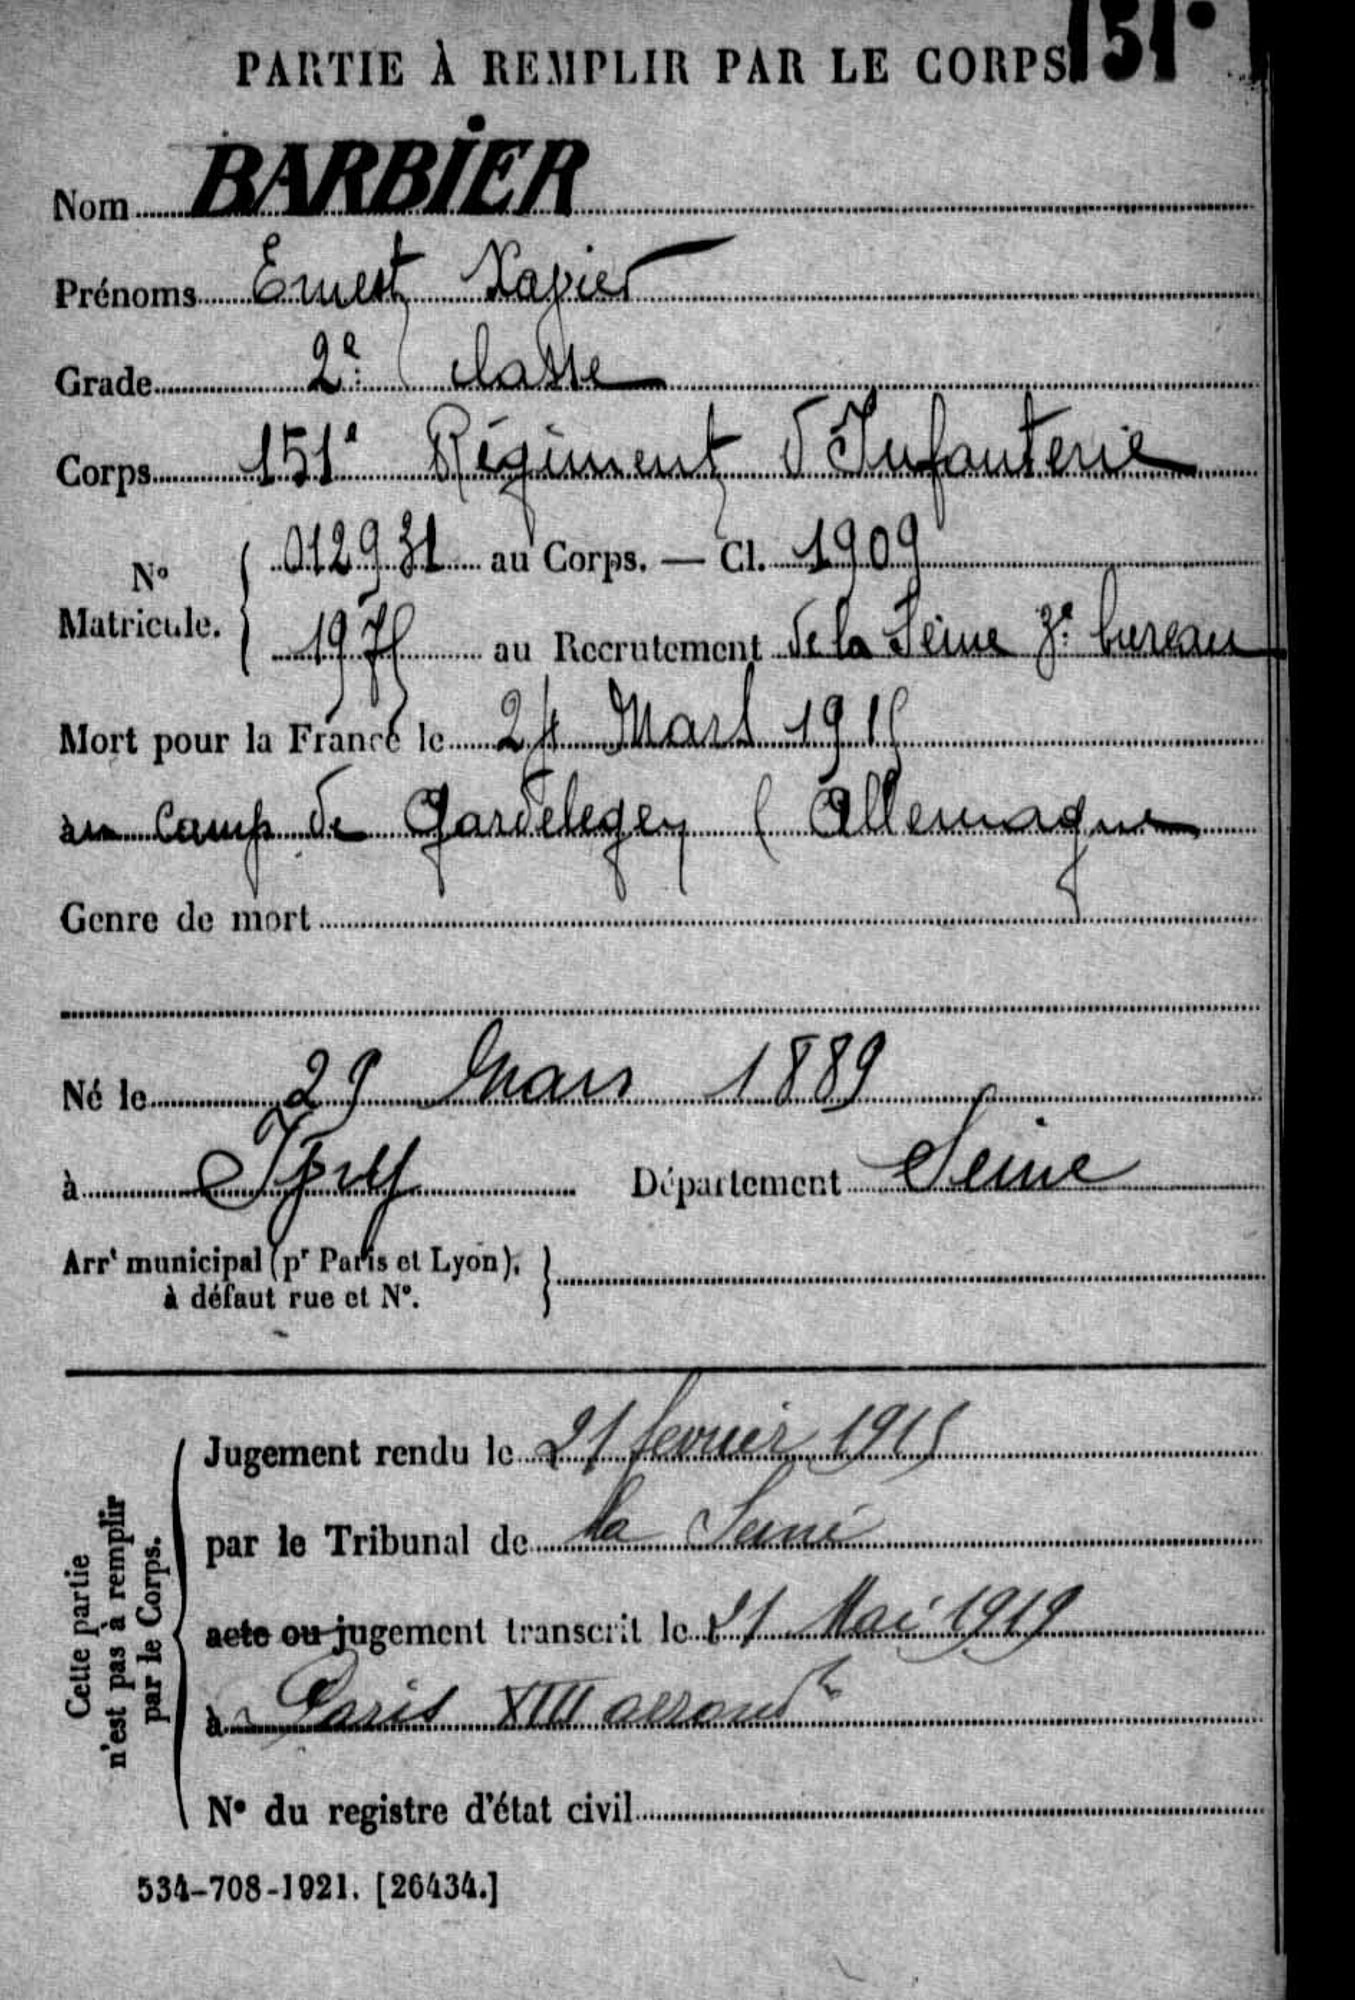 PARTIE À REMPLIR PAR LE CORPS 151e
Nom BARBIER
Prénoms Ernest Xavier
Grade 2e classe
Corps 151e Régiment d'Infanterie
N° Matricule. { 012931 au Corps. — Cl. 1909
1975 au Recrutement de la Seine 3e bureau
Mort pour la France le 24 Mars 1915
au camp de Gardelegen (Allemagne
Genre de mort
Né le 29 Mars 1889
à Ivry Département Seine
Arrt municipal (pr Paris et Lyon),
à défaut rue et N°.
Cette partie
n'est pas à remplir
par le Corps.
Jugement rendu le 21 fevrier 1915
par le Tribunal de la Seine
acte ou jugement transcrit le 21 Mai 1919
à Paris XIII arrondt
N° du registre d'état civil
534-708-1921. [26434.]